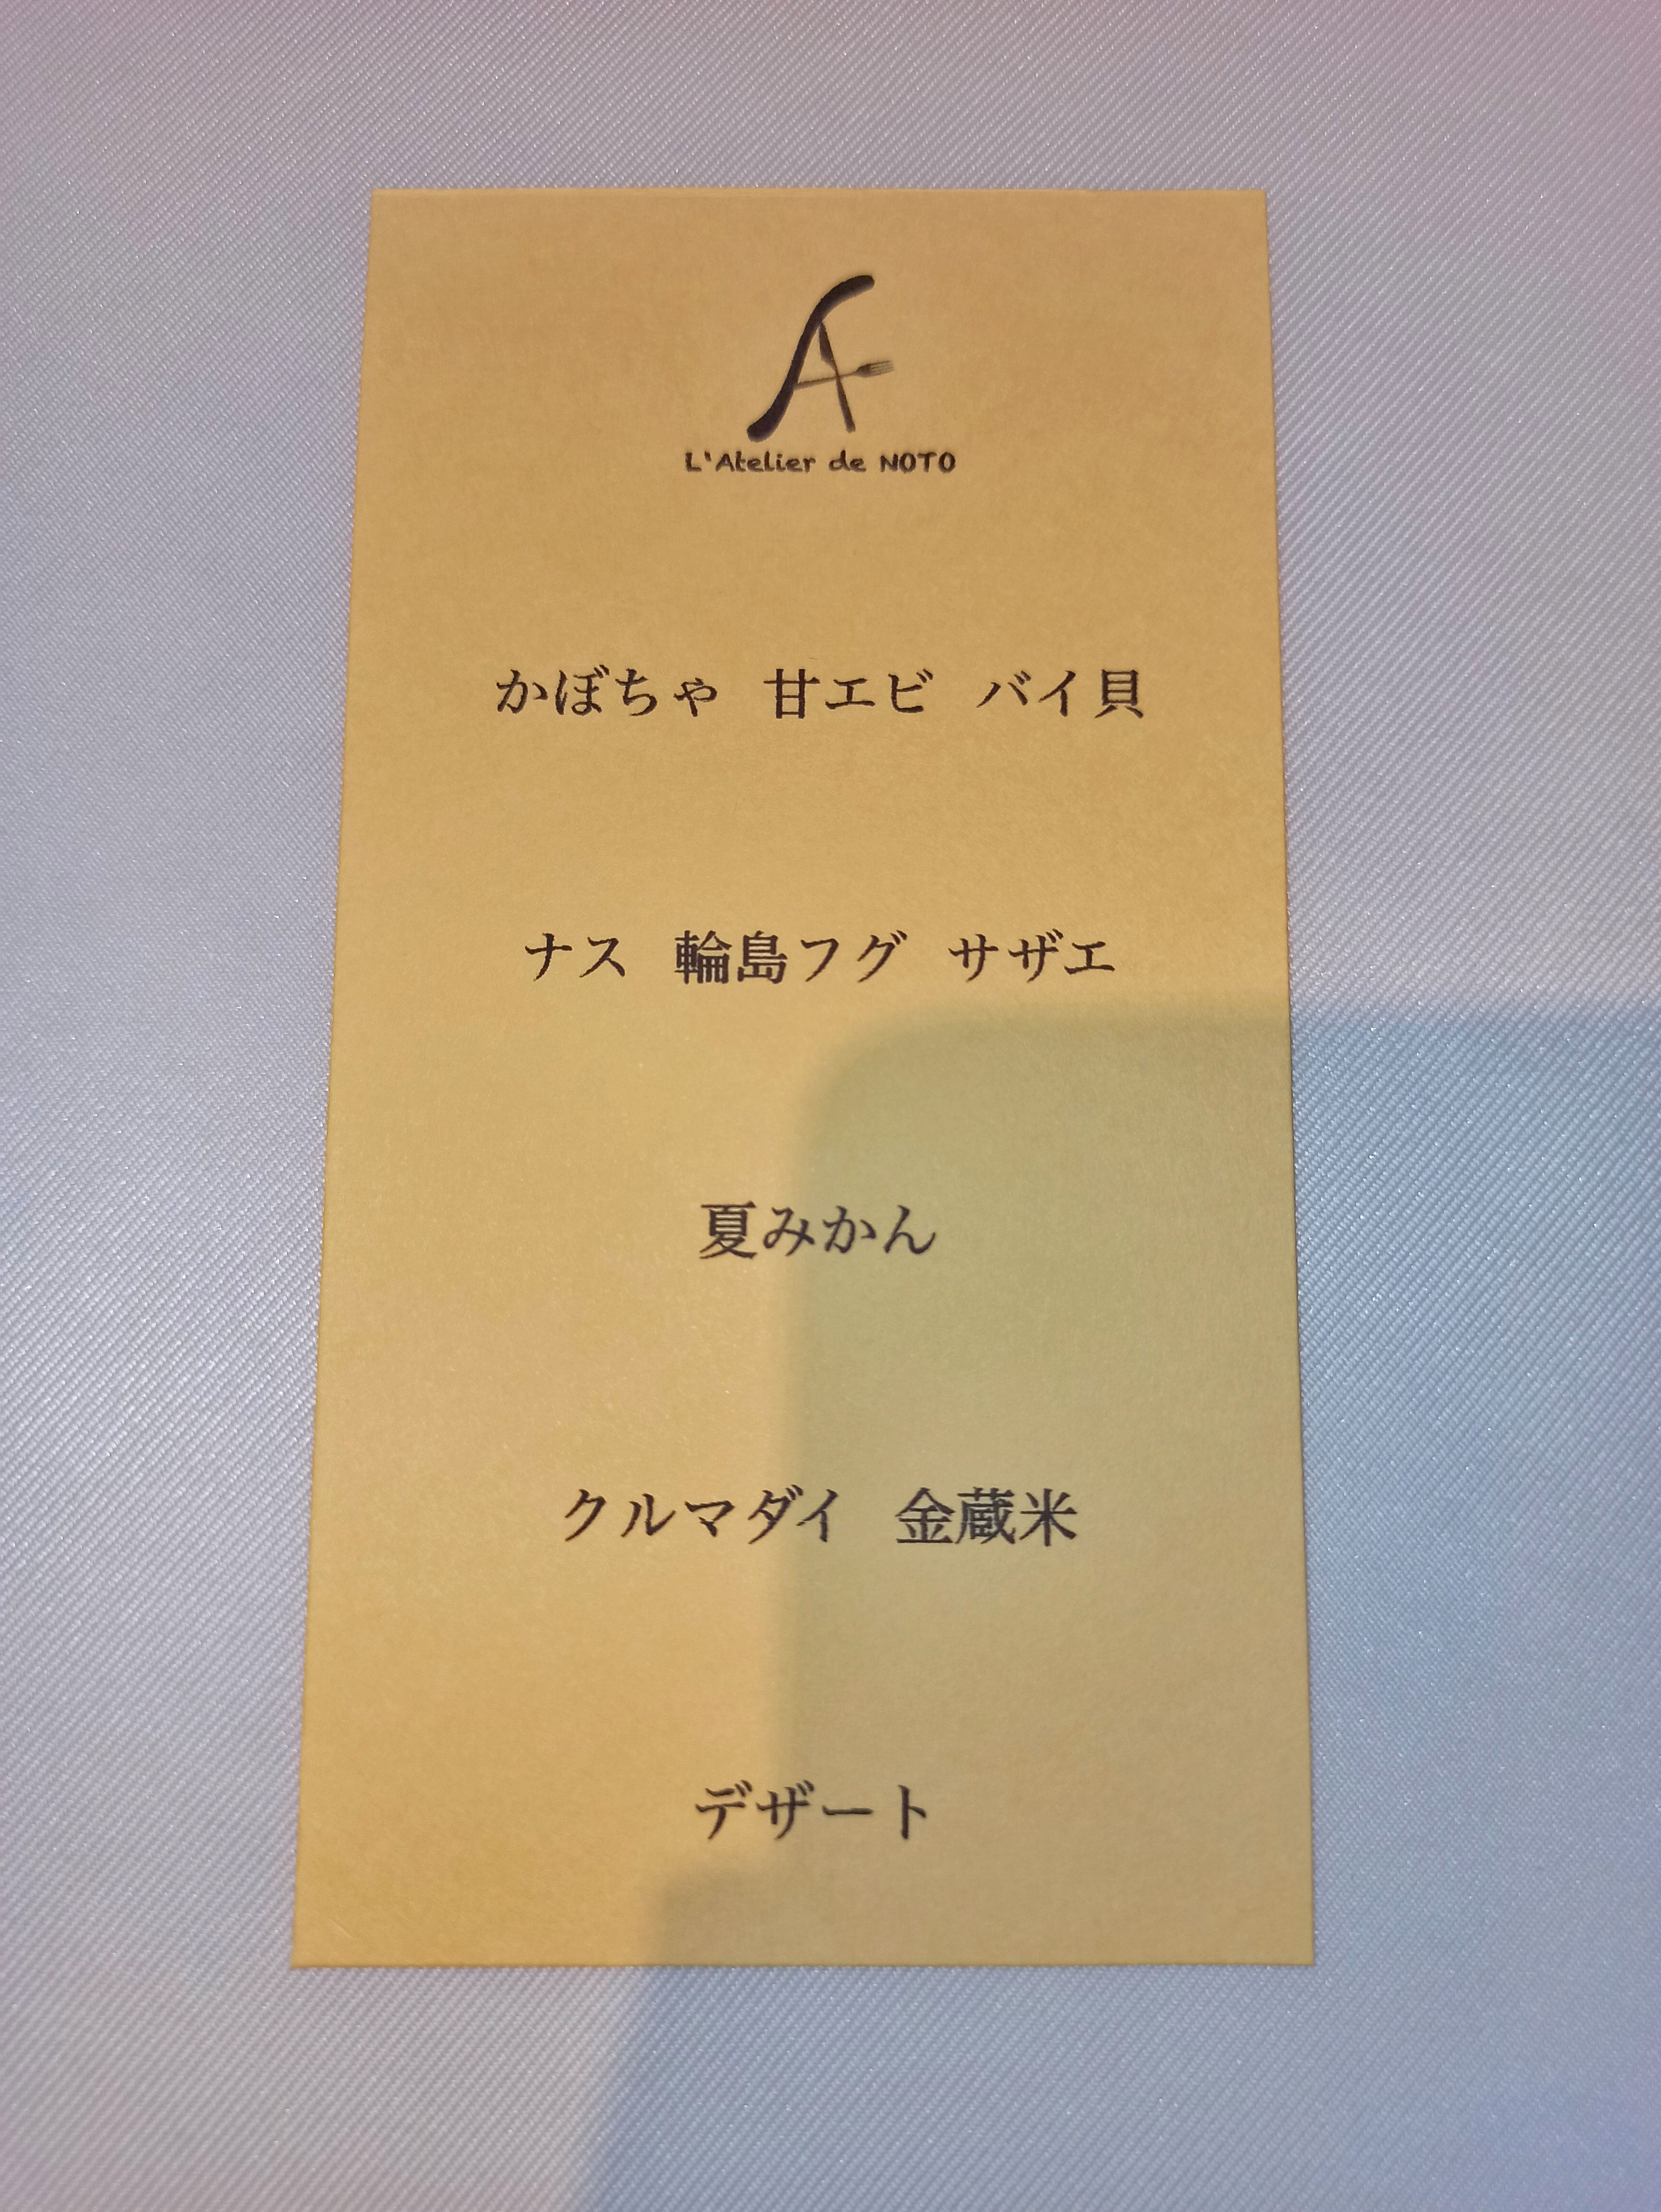 L'Atelier de NOTO
かぼちゃ 甘エビ バイ貝
ナス 輪島フグ サザエ
夏みかん
クルマダイ 金蔵米
デザート